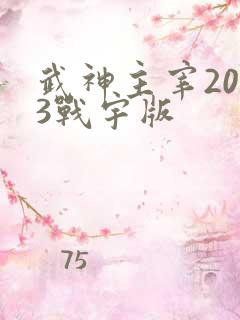 武神主宰20
3戰宇版
75